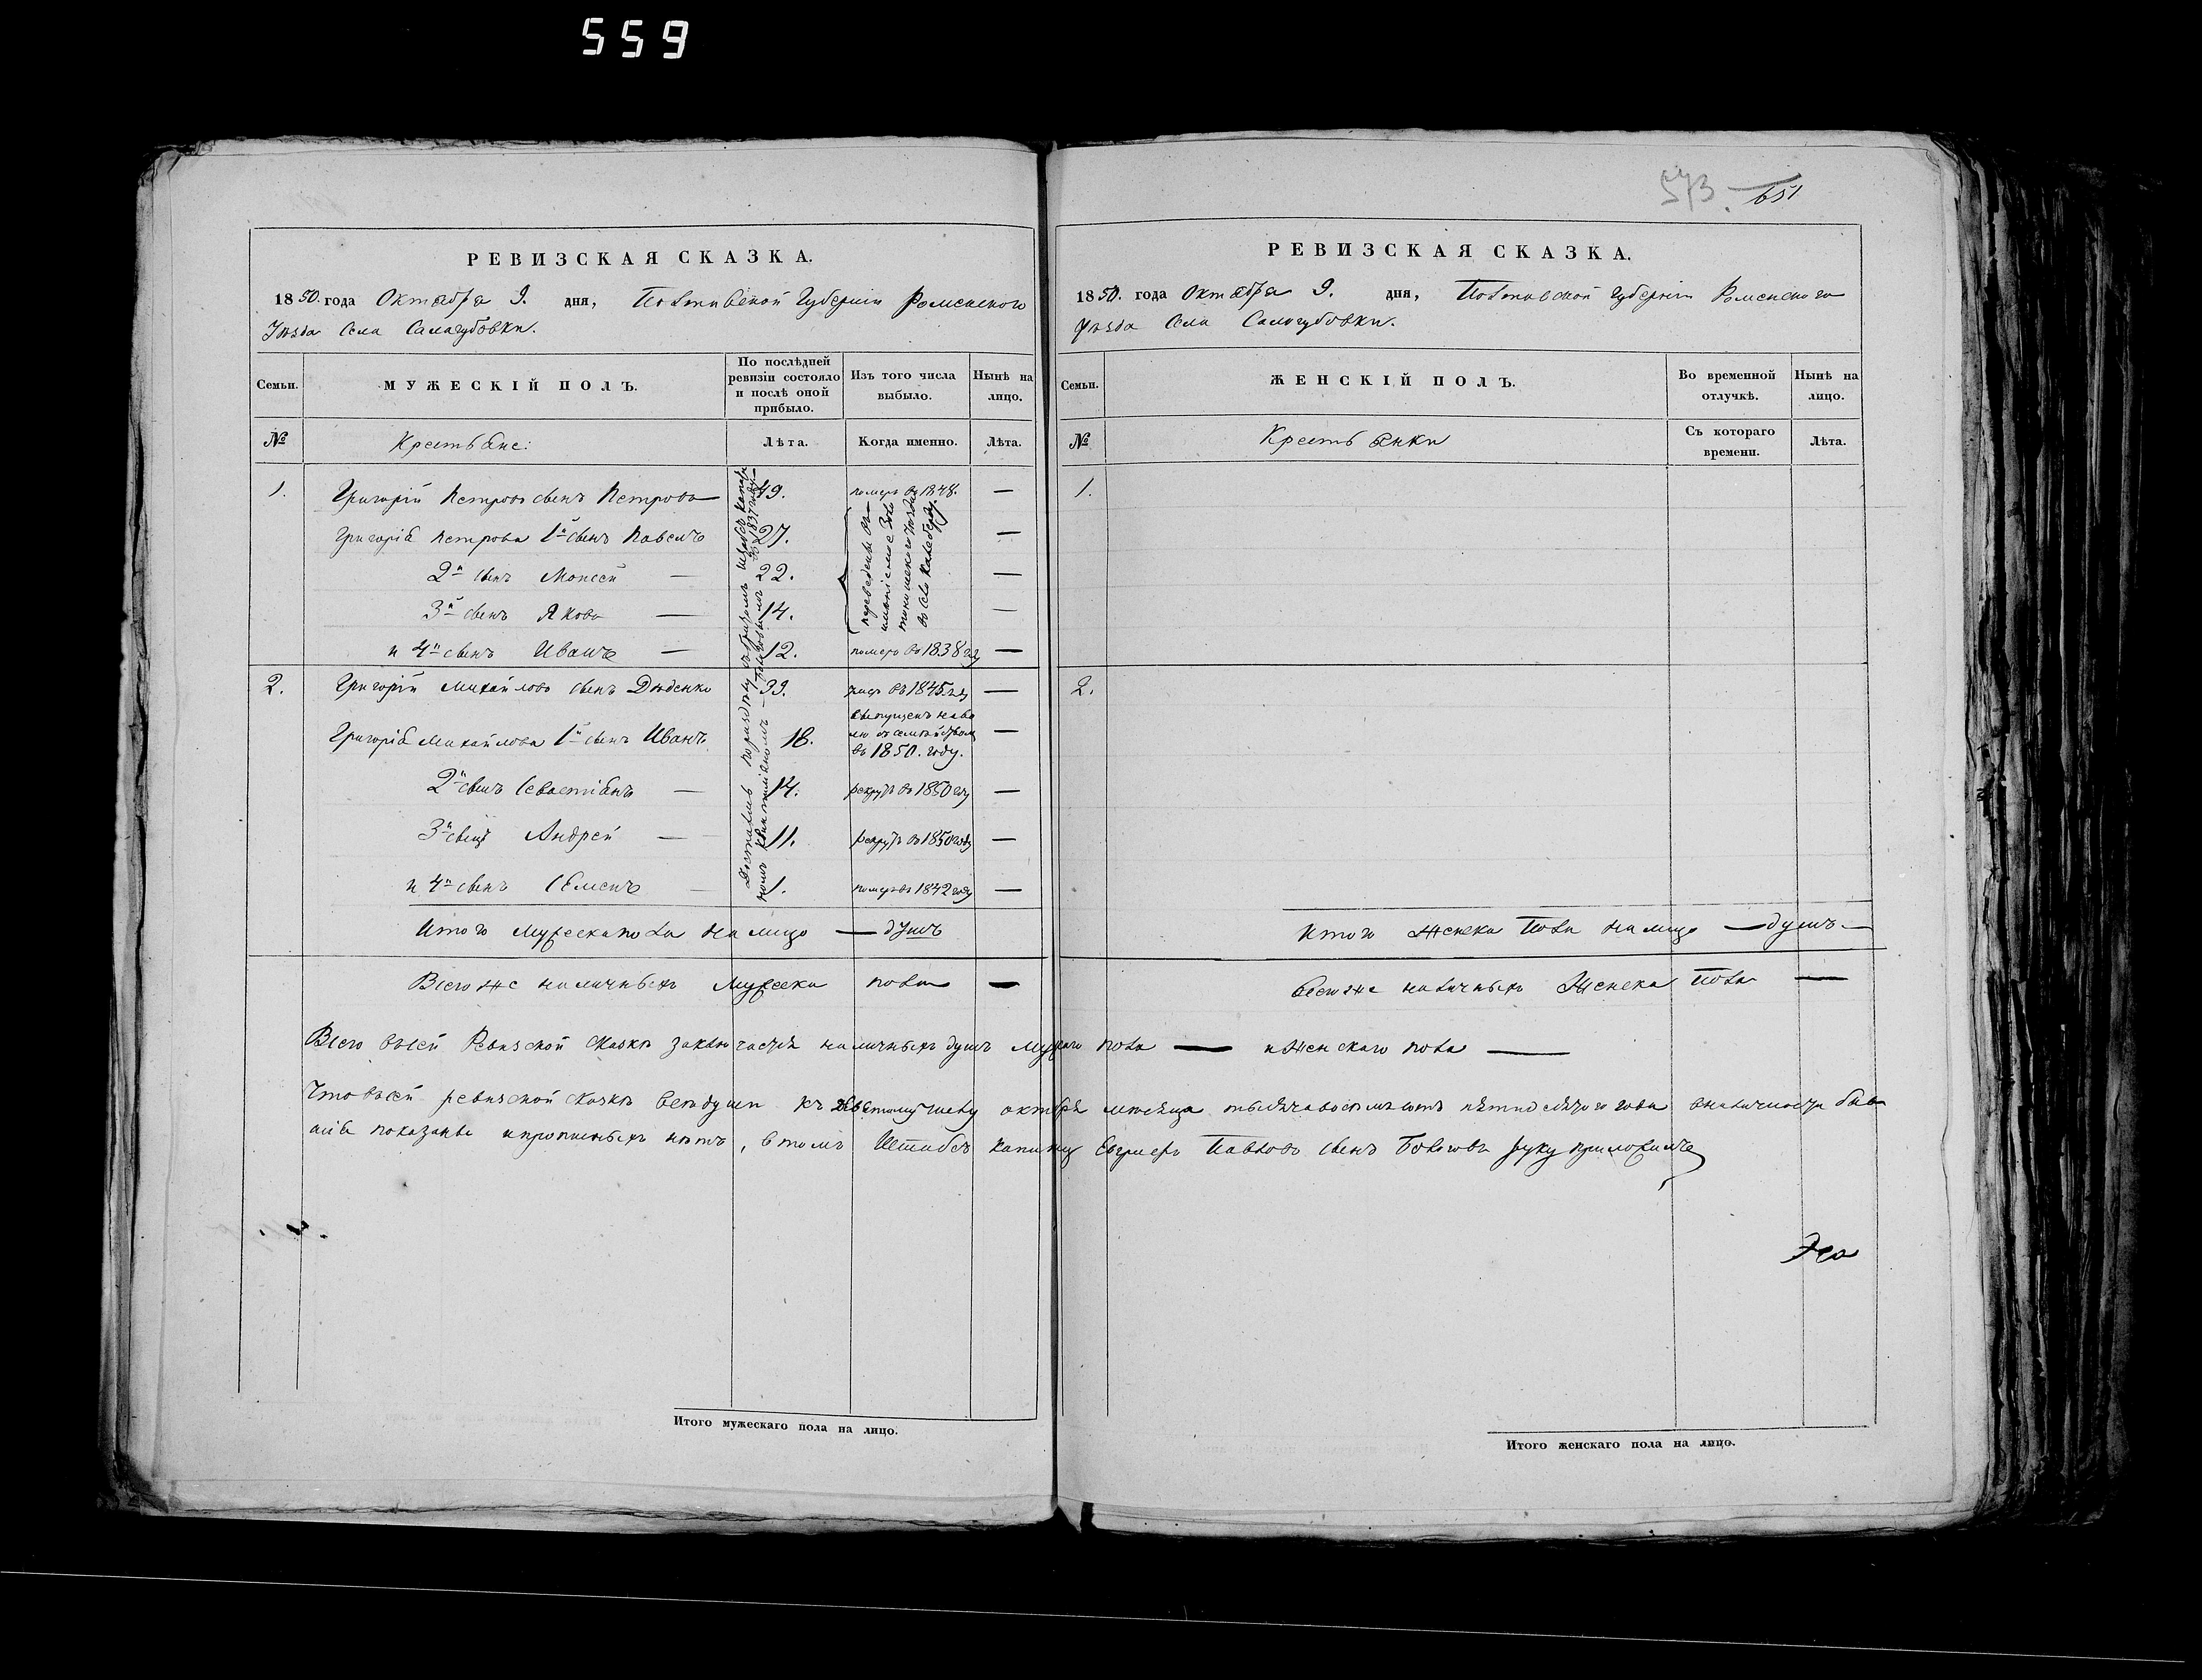 559
573. 651
РЕВИЗСКАЯ СКАЗКА.
1850. года Октября 9. дня, Полтавской Губернии Роменского
Уезда Села Салогубовки.
Семьи. МУЖЕСКІЙ ПОЛЪ. По послѣдней ревизіи состояло и послѣ оной прибыло. Изъ того числа выбыло. Нынѣ на лицо.
№ Крестьяне: Лѣта. Когда именно. Лѣта.
1. Григорій Петровъ сынъ Петрова 49. померъ въ 1848. —
Григорія Петрова 1й сынъ Павелъ 27. —
2й сынъ Моисей — 22. —
3й сынъ Яковъ — 14. —
и 4й сынъ Иванъ — 12. померъ въ 1838 году —
переведены въ
имѣніе моє Золо
тоношского Уѣзда
въ село
Достались по раздѣлу съ братомъ Штабсъ Капита
номъ въ 1837 году
2. Григорій Михайловъ сынъ Дяденко 39. въ 1845 году —
Григорія Михайлова 1й сынъ Иванъ 18. выпущенъ на во
лю съ семействомъ
въ 1850. году. —
2й сынъ Севастіянъ — 14. рекрутъ въ 1850 году —
3й сынъ Андрей — 11. рекрутъ въ 1850 году —
и 4й сынъ Семенъ — 1. померъ въ 1842 году —
Итого мужеска пола на лицо — душъ
Всего же наличныхъ Мужеска пола —
Итого мужескаго пола на лицо.
РЕВИЗСКАЯ СКАЗКА.
1850. года Октября 9. дня, Полтавской Губерніи Роменского
Уезда Села Салогубовки.
Семьи. ЖЕНСКІЙ ПОЛЪ. Во временной отлучкѣ. Нынѣ на лицо.
№ Крестьянки Съ котораго времени. Лѣта.
1.
2.
Итого Женска Пола на лицо — душъ —
Всего же наличныхъ Женска Пола —
Всего въ сей Ревизской Сказкѣ заключается наличныхъ душъ мужскаго пола — и Женскаго пола —
Что въ сей ревизской сказкѣ всѣ души къ девятому числу октября мѣсяца тысяча восемьсотъ пятидесятого года в наличности быв
шія показаны и прописныхъ нѣтъ, в томъ Штабсъ Капитанъ Павловъ сынъ руку приложилъ
Итого женскаго пола на лицо.